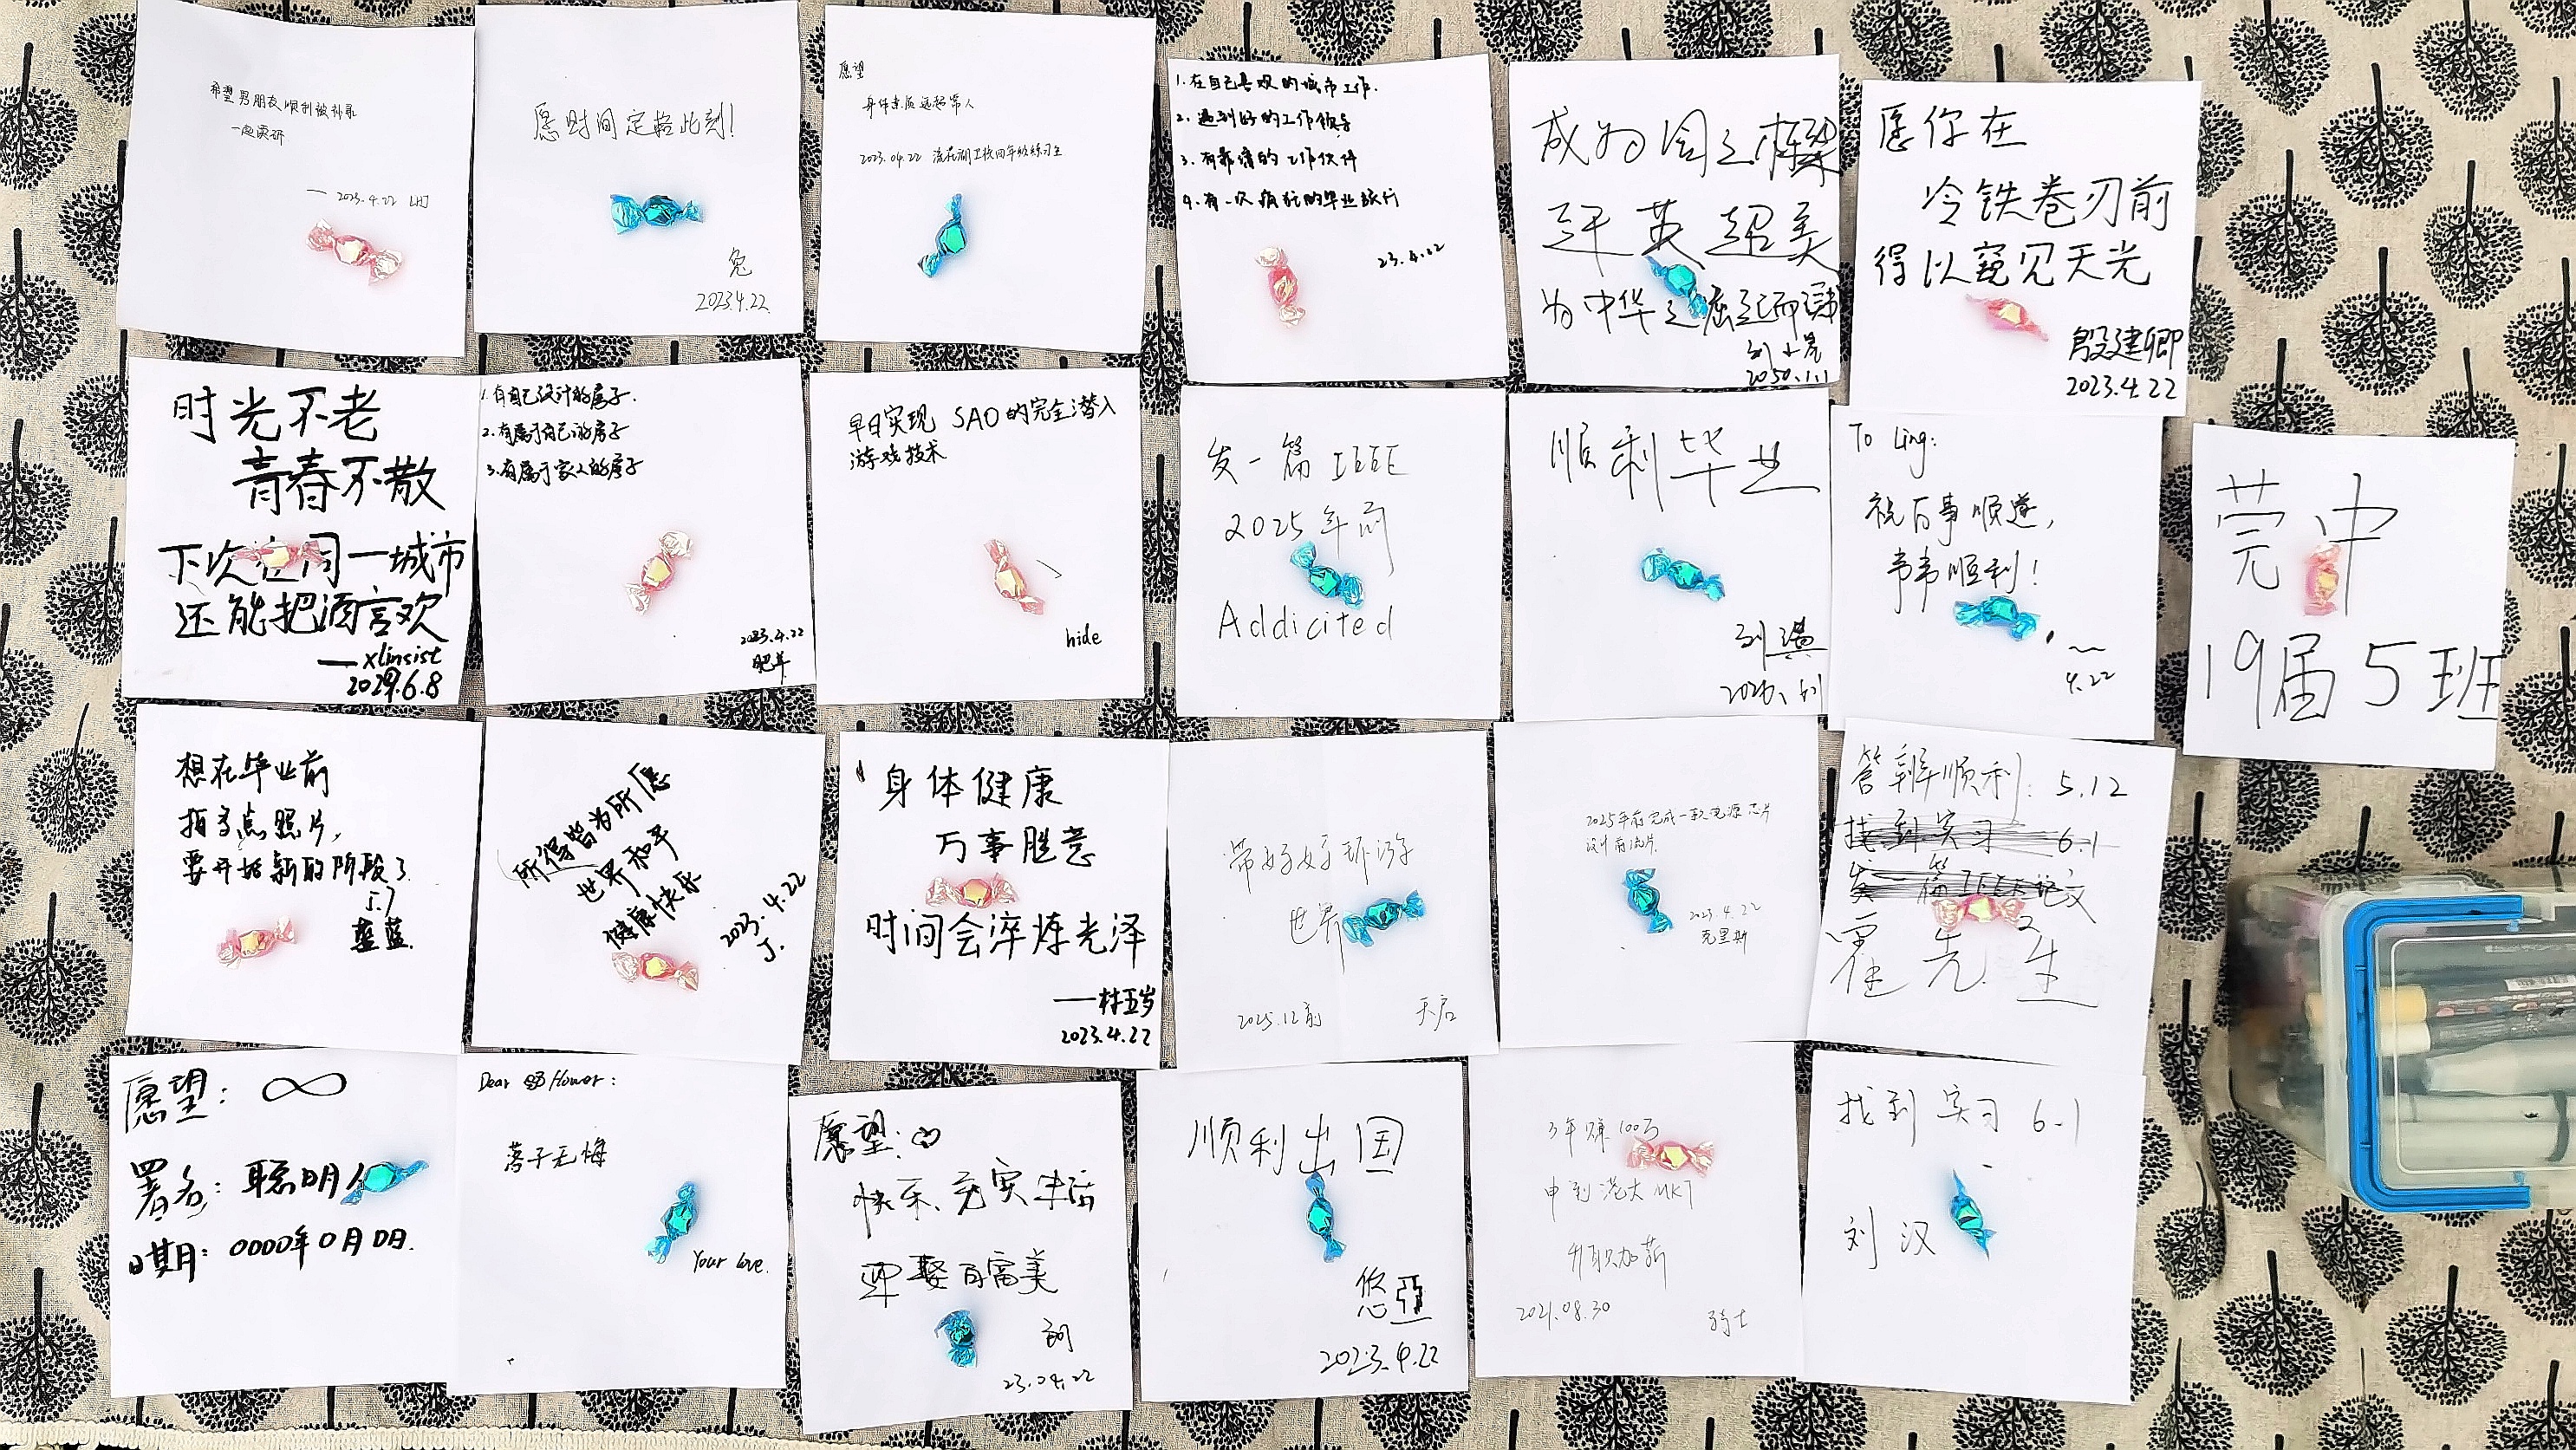 希望男朋友顺利被补录
一起读研
— 2023.4.22 LHJ
愿时间定格此刻!
兔
2023.4.22
愿望
身体素质远超常人
2023.04.22 流花湖卫校四年级练习生
1.在自己喜欢的城市工作.
2.遇到好的工作领导
3.有靠谱的工作伙伴
4.有一次疯狂的毕业旅行
23.4.22
成为国之栋梁
赶英超美
为中华之崛起而读
2050.1.1
愿你在
冷铁卷刃前
得以窥见天光
殷建卿
2023.4.22
时光不老
青春不散
下次在同一城市
还能把酒言欢
—xlinsist
2029.6.8
1.有自己设计的房子.
2.有属于自己的房子
3.有属于家人的房子
2023.4.22
肥羊
早日实现 SAO的完全潜入
游戏技术
hide
发一篇IEEE
2025年前
Addicited
顺利毕业
刘
To Ling:
祝百事顺遂,
韦韦顺利!
~
4.22
莞中
19届5班
想在毕业前
拍多点照片,
要开始新的阶段了
蓝蓝.
所得皆为所愿
世界和平
健康快乐
2023.4.22
J.
身体健康
万事胜意
时间会淬炼光泽
——林五岁
2023.4.22
带好好环游
世界
2025.12前
天启
2025年前完成一款电源芯片
设计前流片.
2023.4.22
克里斯
答辩顺利: 5.12
找到实习 6.1
发一篇IEEE论文
霍先生
愿望: ∞
署名: 聪明人
日期: 0000年0月0日.
Dear flower:
落子无悔
Your love.
愿望:
快乐、充实生活
迎娶白富美
23.04.22
顺利出国
悠亞
2023.4.22
3年赚100万
申到港大MKT
升职加薪
2021.08.30
骑士
找到实习 6.1
刘汉